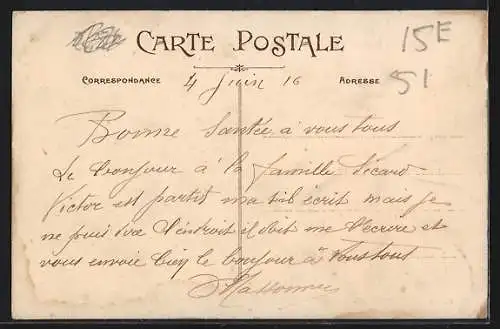 CARTE POSTALE
15E
CORRESPONDANCE 4 Juin 16 ADRESSE
51
Bonne Santée à vous tous
Le bonjour à la famille Sicard
Victor est partit ma til écrit mais je
ne puis dire l'endroit il doit me l'écrire et
vous envoie bien le bonjour à tous tous